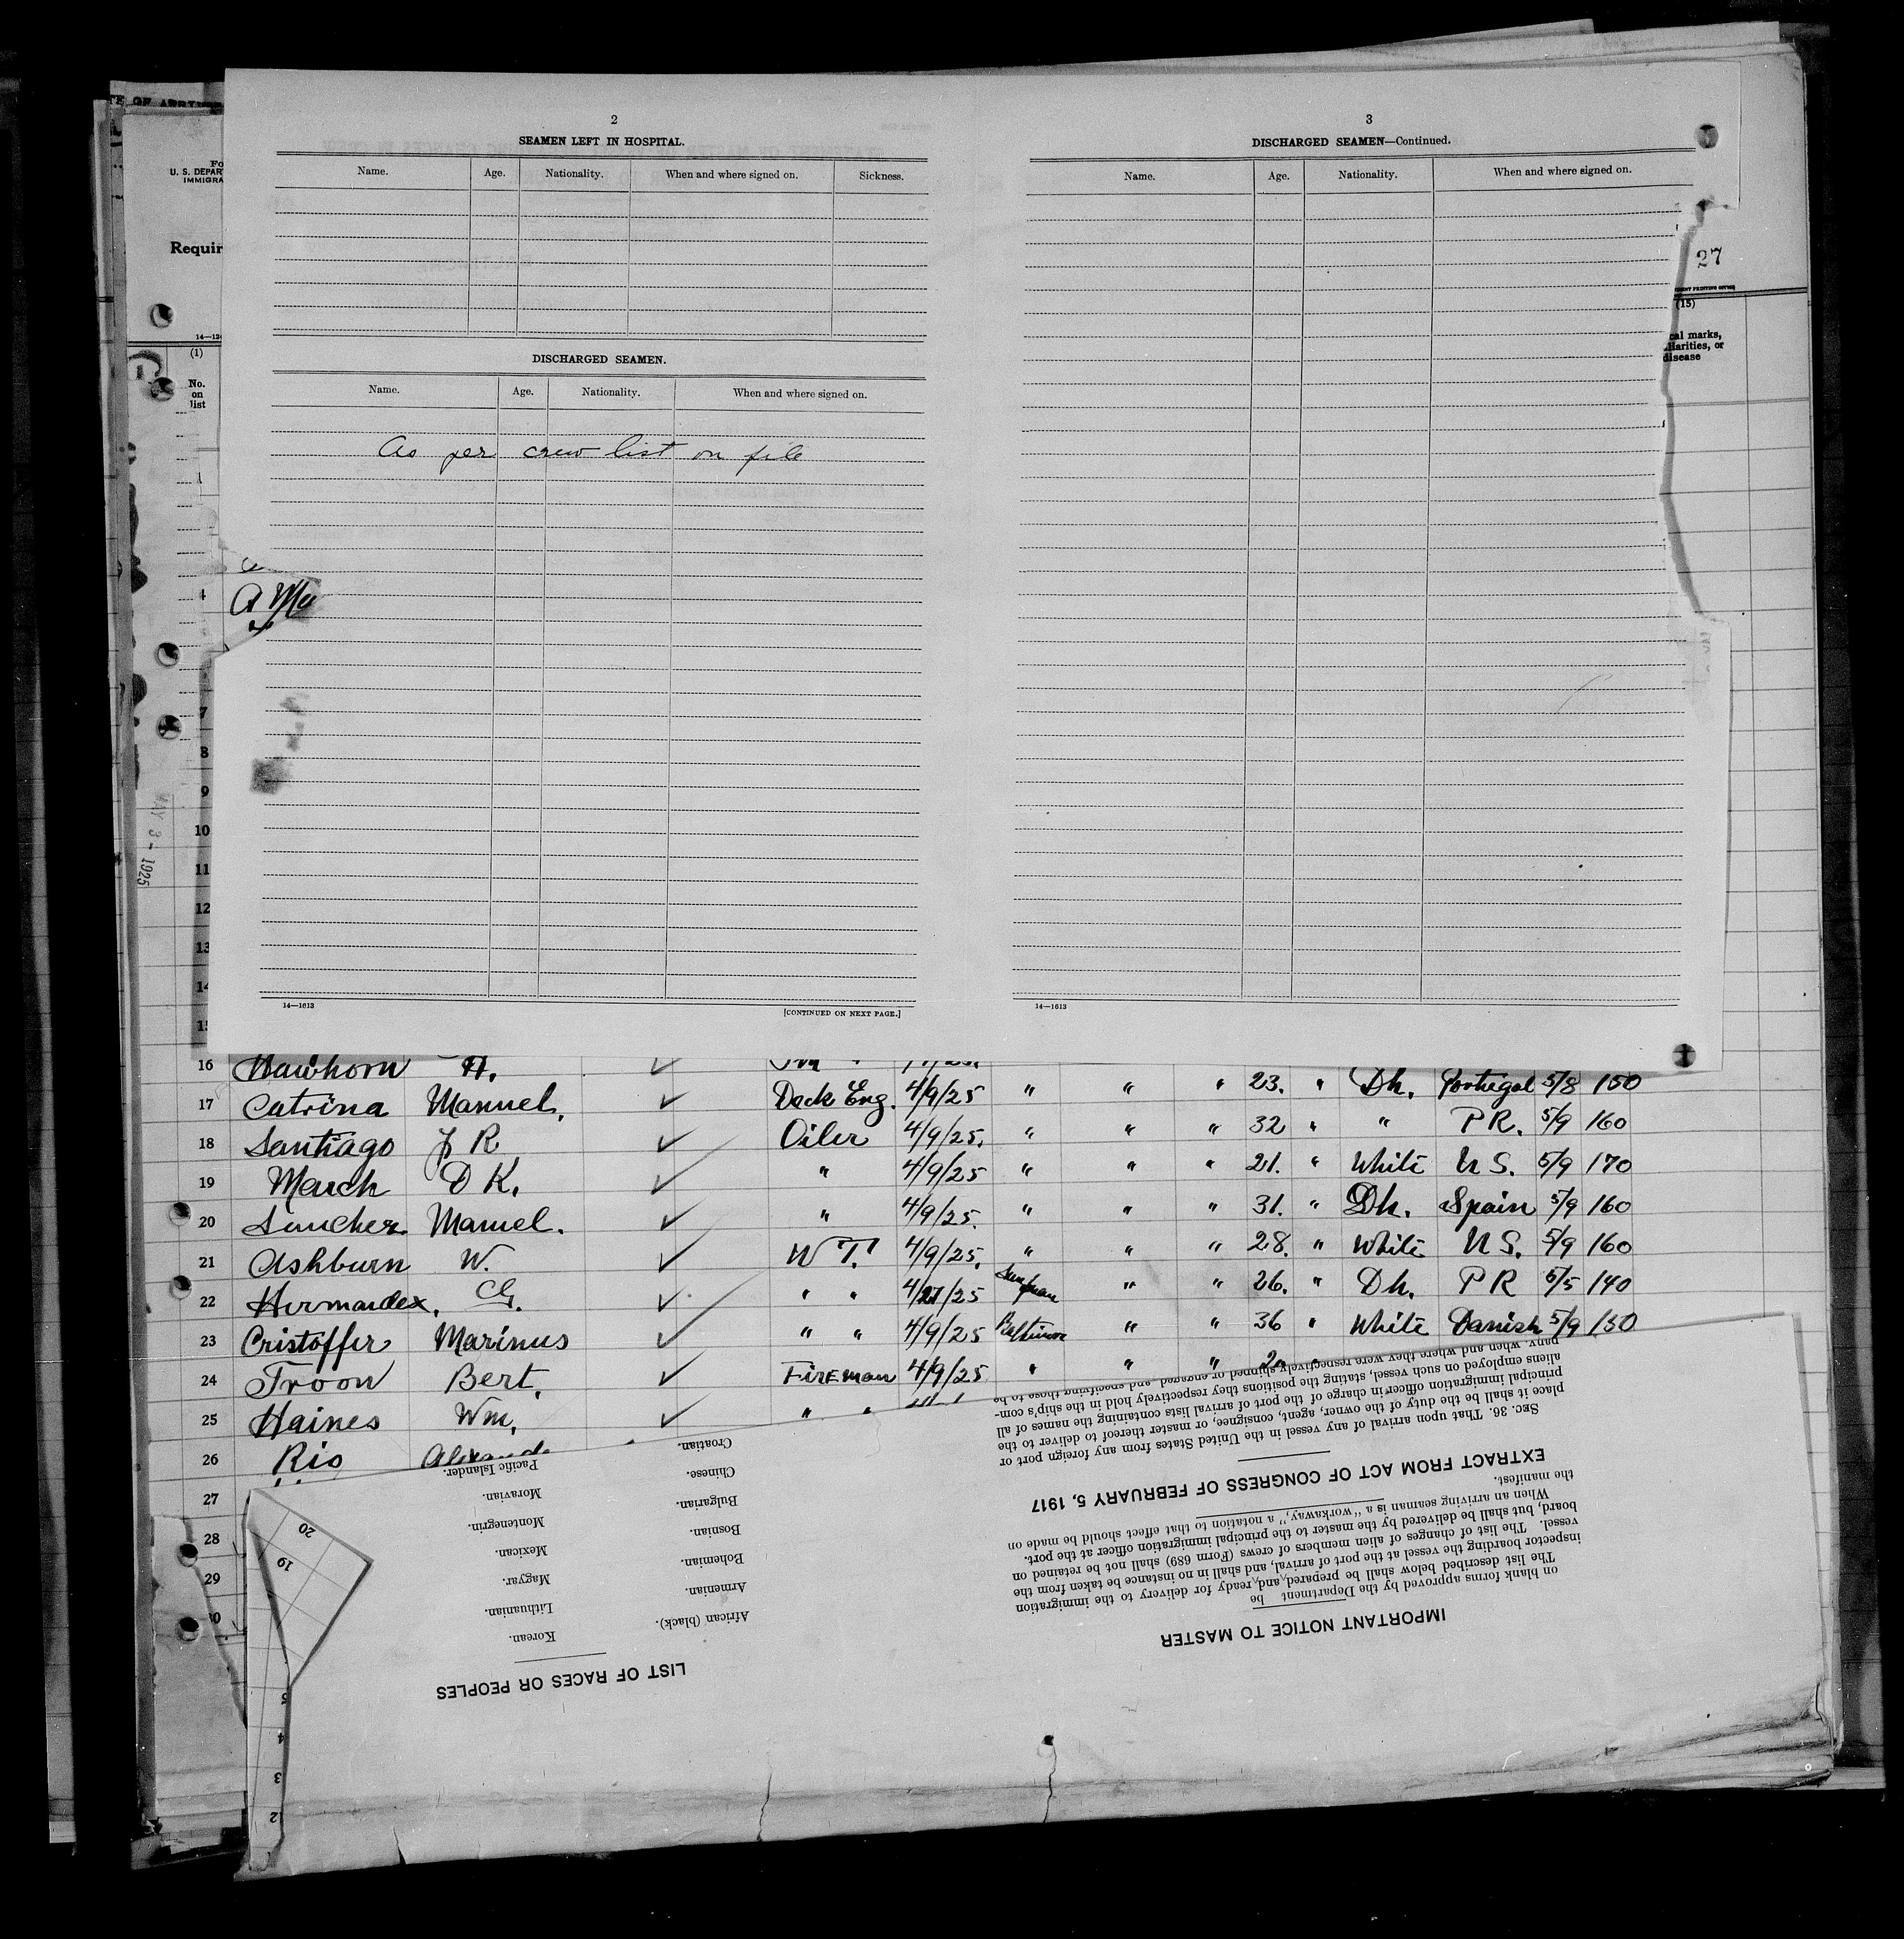 TE OF ARRIV
2
SEAMEN LEFT IN HOSPITAL.
Name. Age. Nationality. When and where signed on. Sickness.
DISCHARGED SEAMEN.
Name. Age. Nationality. When and where signed on.
As per crew list on file
14—1613
[CONTINUED ON NEXT PAGE.]
3
DISCHARGED SEAMEN—Continued.
Name. Age. Nationality. When and where signed on.
14—1613
Fo
U. S. DEPAR
IMMIGRA
Requir
14—12
(1)
No.
on
list
27
(15)
cal marks,
liarities, or
disease
4
7
8
9
10
11
12
13
14
15
MAY 3 - 1925
16 Hawhorn H. ✓
17 Catrina Manuel. ✓ Deck Eng. 4/9/25 " " " 23. " Dk. Portugal 5/8 150
18 Santiago J R ✓ Oiler 4/9/25. " " " 32 " " P R. 5/9 160
19 March D K. ✓ " 4/9/25 " " " 21. " White U S. 5/9 170
20 Sancher Manuel. ✓ " 4/9/25. " " " 31. " Dk. Spain 5/9 160
21 Ashburn W. ✓ W T. 4/9/25. " " " 28. " White U S. 5/9 160
22 Hermandex. G. ✓ " " 4/21/25 San Juan " " 26. " Dk. P R 5/5 140
23 Cristoffer Marinus ✓ " " 4/9/25 Baltimore " " 36 " White Danish 5/9 150
24 Troon Bert. ✓ Fireman 4/9/25 " " "
25 Haines Wm. ✓ " "
26 Rio
27
28
29
30
IMPORTANT NOTICE TO MASTER
on blank forms approved by the Department be
The list described below shall be prepared and ready for delivery to the immigration
inspector boarding the vessel at the port of arrival, and shall in no instance be taken from the
vessel. The list of changes of alien members of crews (Form 689) shall not be retained on
board, but shall be delivered by the master to the principal immigration officer at the port.
When an arriving seaman is a "workaway," a notation to that effect should be made on
the manifest.
EXTRACT FROM ACT OF CONGRESS OF FEBRUARY 5, 1917
SEC. 36. That upon arrival of any vessel in the United States from any foreign port or
place it shall be the duty of the owner, agent, consignee, or master thereof to deliver to the
principal immigration officer in charge of the port of arrival lists containing the names of all
aliens employed on such vessel, stating the positions they respectively hold in the ship's com-
pany, when and where they were respectively shipped or engaged, and specifying those to be
LIST OF RACES OR PEOPLES
African (black).
Armenian.
Bohemian.
Bosnian.
Bulgarian.
Chinese.
Croatian.
Korean.
Lithuanian.
Magyar.
Mexican.
Montenegrin.
Moravian.
Pacific Islander.
20
19
5
4
3
2